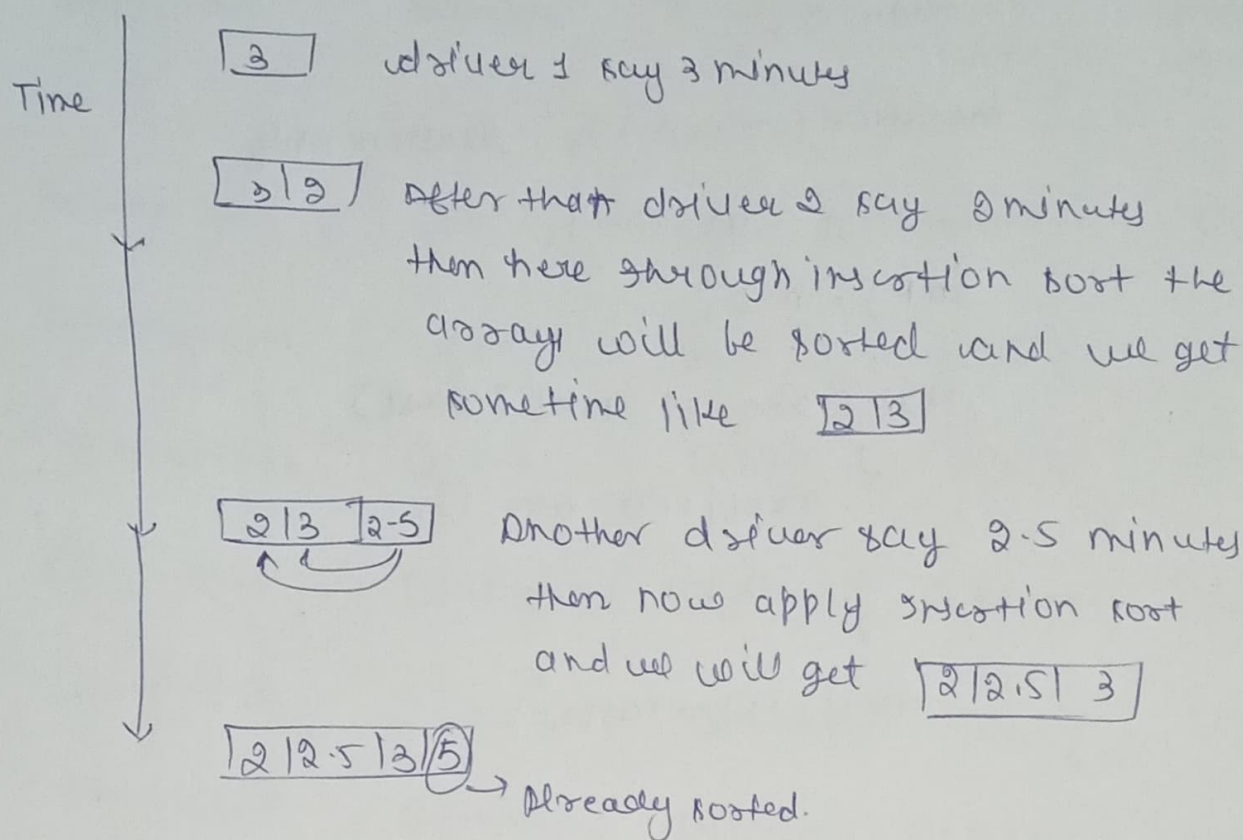 Time
3 driver 1 say 3 minutes
3 | 2 After that driver 2 say 2 minutes
then here through insertion sort the
array will be sorted and we get
sometime like 2 | 3
2 | 3 | 2.5 Another driver say 2.5 minutes
then now apply insertion sort
and we will get 2 | 2.5 | 3
2 | 2.5 | 3 | 5
Already sorted.